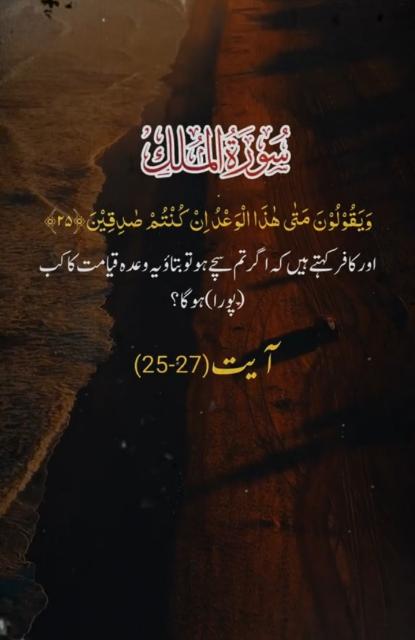 سُوْرَةُ المُلْكِ
وَيَقُوْلُوْنَ مَتٰى هٰذَا الْوَعْدُ اِنْ كُنْتُمْ صٰدِقِيْنَ ﴿۲۵﴾
اور کافر کہتے ہیں کہ اگر تم سچے ہو تو بتاؤ یہ وعدہ قیامت کا کب
(پورا) ہو گا؟
آیت (25-27)